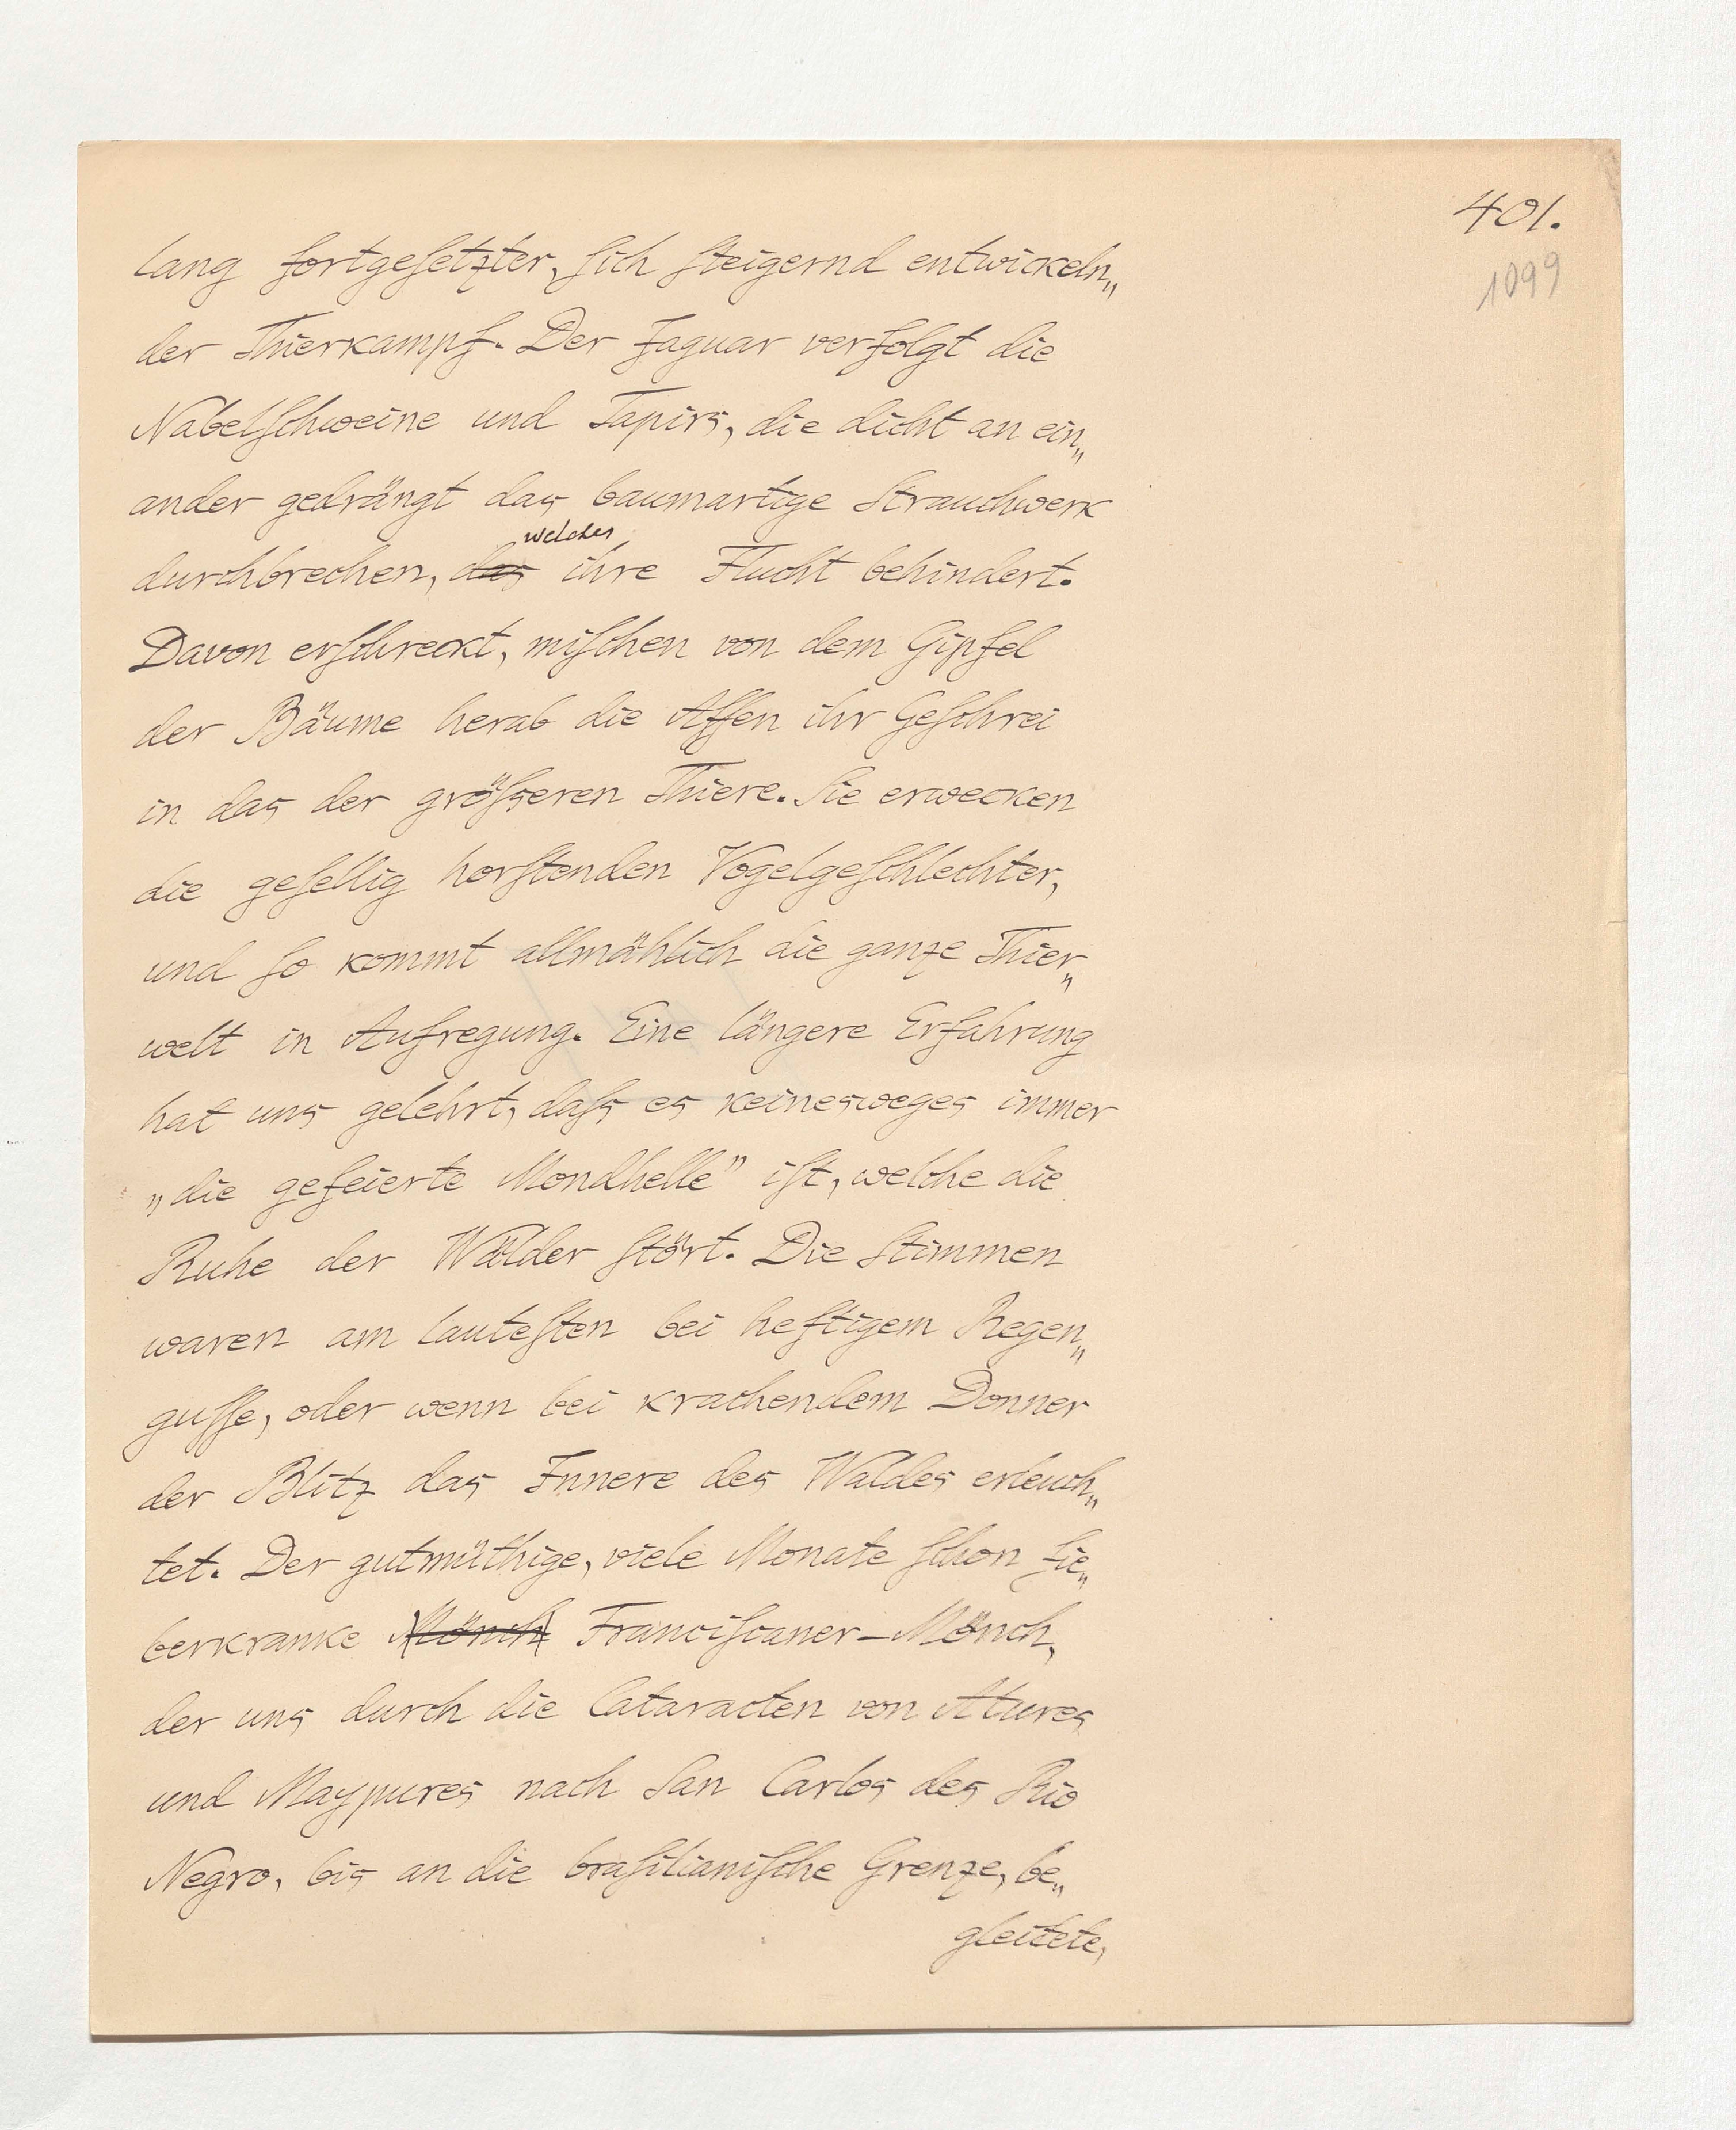 401.
1099
lang fortgeſetzter, ſich ſteigernd entwickeln„
der Thierkampf. Der Jaguar verfolgt die
Nabelſchweine und Tapirs, die dicht an ein„
ander gedrängt das baumartige Strauchwerk
welches
durchbrechen, das ihre Flucht behindert.
Davon erſchreckt, miſchen von dem Gipfel
der Bäume herab die Affen ihr Geſchrei
in das der gröſseren Thiere. Sie erwecken
die geſellig horſtenden Vogelgeſchlechter,
und ſo kommt allmählich die ganze Thier„
welt in Aufregung. Eine längere Erfahrung
hat uns gelehrt, daſs es keinesweges immer
„die gefeierte Mondhelle” iſt, welche die
Ruhe der Wälder ſtört. Die Stimmen
waren am lauteſten bei heftigem Regen„
guſſe, oder wenn bei krachendem Donner
der Blitz das Innere des Waldes erleuch„
tet. Der gutmüthige, viele Monate ſchon fie„
berkranke Mönch Franciſcaner-Mönch,
der uns durch die Cataracten von Atures
und Maypures nach San Carlos des Rio
Negro, bis an die braſilianiſche Grenze, be„
gleitete,